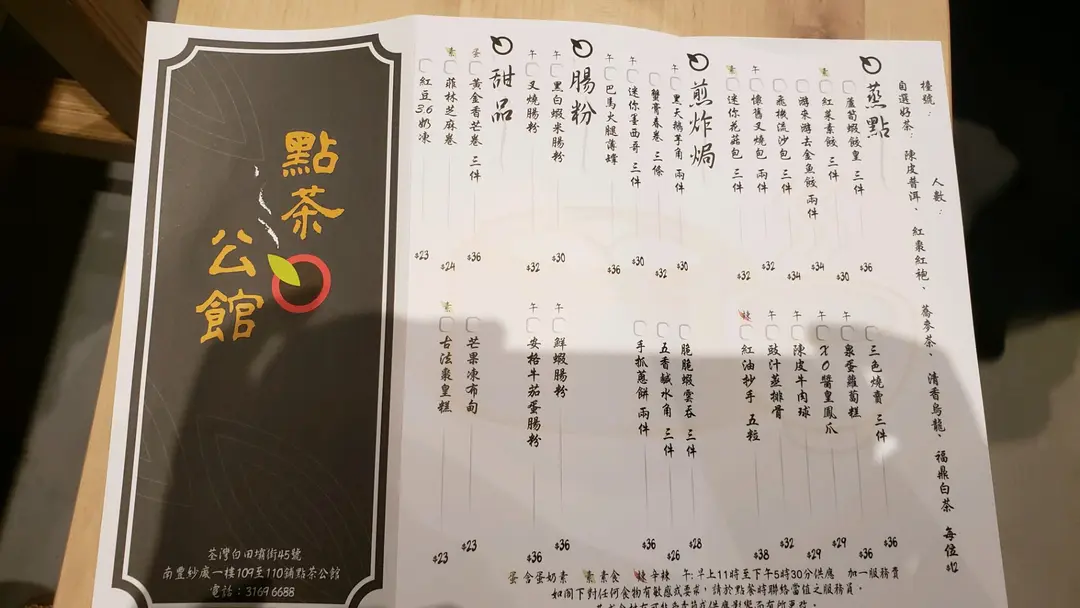 點茶
公館
荃灣白田壩街45號
南豐紗廠一樓109至110鋪點茶公館
電話：3169 6688
檯號： 人數：
自選好茶： 陳皮普洱、紅棗紅袍、蕎麥茶、清香烏龍、福鼎白茶 每位$12
蒸點
蘆筍蝦餃皇 三件 $36
素 紅菜素餃 三件 $30
游來游去金魚餃 兩件 $34
飛機流沙包 三件 $34
午 懷舊叉燒包 兩件 $32
素 迷你花菇包 三件 $32
三色燒賣 三件 $36
午 臬蛋蘿蔔糕 $36
午 XO醬皇鳳爪 $29
午 陳皮牛肉球 $29
午 豉汁蒸排骨 $32
辣 紅油抄手 五粒 $38
煎炸焗
午 黑天鵝芋角 兩件 $30
蟹膏春卷 三條 $32
午 迷你墨西哥 三件 $30
午 巴馬火腿薄罉 $36
脆脆蝦雲吞 三件 $28
五香鹹水角 三件 $26
手抓蔥餅 兩件 $36
腸粉
午 黑白蝦米腸粉 $30
午 叉燒腸粉 $32
午 鮮蝦腸粉 $36
午 安格牛茄蛋腸粉 $36
甜品
蛋 黃金香芒卷 三件 $36
素 菲林芝麻卷 $24
紅豆3.6奶凍 $23
芒果凍布甸 $23
素 古法棗皇糕 $23
蛋 含蛋奶素 素 素食 辣 辛辣 午：早上11時至下午5時30分供應 加一服務費
如閣下對任何食物有敏感或要求，請於點餐時聯絡當值之服務員。